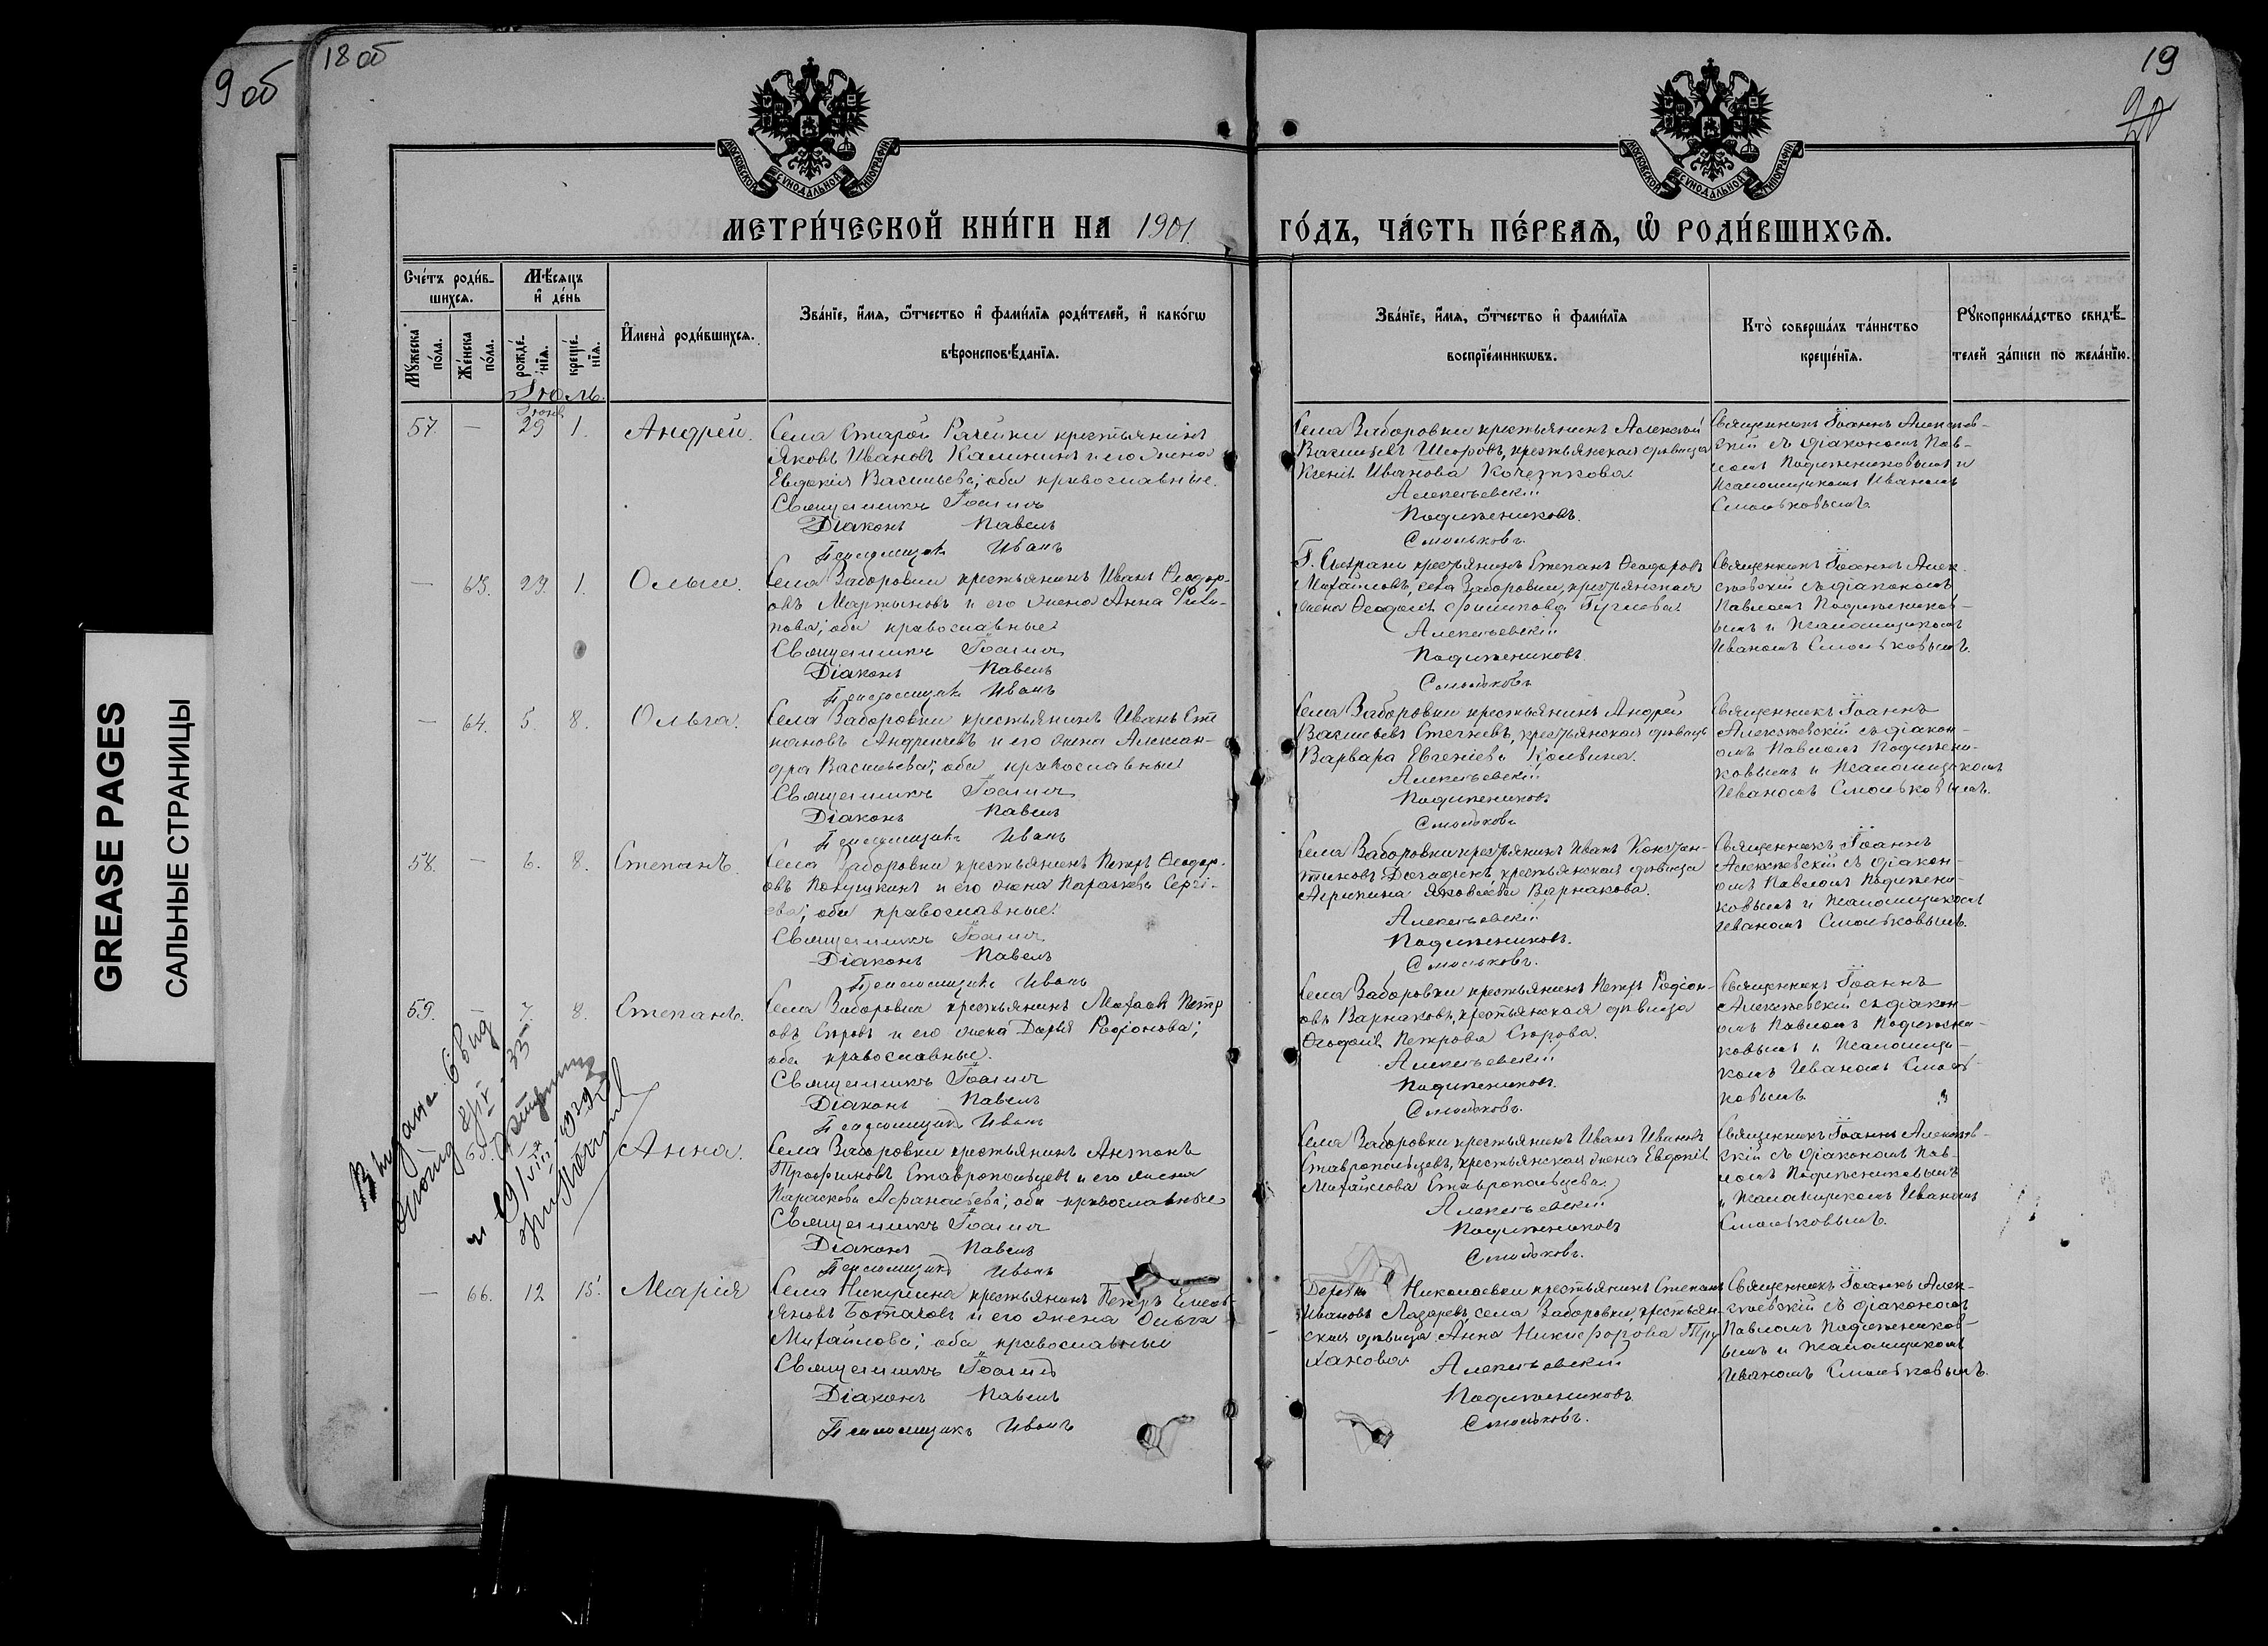 18 об
9 об
19
20
МОСКОВСКОЙ СѴНОДАЛЬНОЙ ТИПОГРАФІИ
МОСКОВСКОЙ СѴНОДАЛЬНОЙ ТИПОГРАФІИ
МЕТРИ́ЧЕСКОЙ КНИ́ГИ НА 1901 ГО́ДЪ, ЧА́СТЬ ПЕ́РВАѦ, Ѡ҆ РОДИ́ВШИХСѦ.
Сче́тъ роди́в-
шихсѧ.
Мѣ́сѧцъ
и҆ де́нь
Мꙋ́жеска по́ла.
Же́нска по́ла.
рожде́нїѧ.
креще́нїѧ.
И҆мена̀ роди́вшихсѧ.
Зва́нїе, и҆́мѧ, ѻ҆́тчество и҆ фами́лїѧ роди́телей, и҆ како́гѡ
вѣроисповѣ́данїѧ.
Зва́нїе, и҆́мѧ, ѻ҆́тчество и҆ фами́лїѧ
воспрїе́мникѡвъ.
Кто̀ соверша́лъ та́инство
креще́нїѧ.
Рꙋкоприкла́дство свидѣ́-
телей за́писи по жела́нїю.
Іюль.
57. — Іюня 29 1. Андрей.
Села Старой Рачейки крестьянинъ
Яковъ Ивановъ Калининъ и его жена
Евдокія Васильева; оба православные.
Священникъ Іоаннъ
Діаконъ Павелъ
Псаломщикъ Иванъ
Села Заборовки крестьянинъ Алексѣй
Васильевъ крестьянская дѣвица
Ксенія Иванова
Алексѣевскій
Подъячниковъ.
Смольковъ.
Священникъ Іоаннъ Алексѣев-
скій съ діакономъ Пав-
ломъ и
псаломщикомъ Иваномъ
Смольковымъ.
— 63. 29. 1. Ольга.
Села Заборовки крестьянинъ Иванъ Ѳеодор-
овъ Мартыновъ и его жена Анна Фили-
пова; оба православные
Священникъ Іоаннъ
Діаконъ Павелъ
Псаломщикъ Иванъ
Г. Сызрани крестьянинъ Степанъ Ѳеодоровъ
Михайловъ, села Заборовки, крестьянская
жена Филиппова
Алексѣевскій
Смольковъ
Священникъ Іоаннъ Алек-
сѣевскій съ діакономъ
Павломъ
ымъ и псаломщикомъ
Иваномъ Смольковымъ.
— 64. 5. 8. Ольга.
Села Заборовки крестьянинъ Иванъ Сте
пановъ Андреичевъ и его жена Алексан-
дра Васильева; оба православные
Священникъ Іоаннъ
Діаконъ Павелъ
Псаломщикъ Иванъ
Села Заборовки крестьянинъ Андрей
Васильевъ крестьянская дѣвица
Варвара Евгеніева
Алексѣевскій
Смольковъ
Священникъ Іоаннъ
Алексѣевскій съ діакон-
омъ Павломъ
ковымъ и псаломщикомъ
Иваномъ Смольковымъ.
58. — 6. 8. Степанъ.
Села Заборовки крестьянинъ Петръ Ѳеодор-
овъ и его жена Параскева Сергі-
ева; оба православные.
Священникъ Іоаннъ
Діаконъ Павелъ
Псаломщикъ Иванъ
Села Заборовки крестьянинъ Иванъ Констан-
тиновъ крестьянская дѣвица
Агрипина Яковлева Варнакова.
Алексѣевскій
Смольковъ.
Священникъ Іоаннъ
Алексѣевскій съ діакон-
омъ Павломъ
ковымъ и псаломщикомъ
Иваномъ Смольковымъ.
59. — 7. 8. Степанъ.
Села Заборовки крестьянинъ Михаилъ Петр
овъ Егоровъ и его жена Дарья Родіонова;
оба православные.
Священникъ Іоаннъ
Діаконъ Павелъ
Псаломщикъ Иванъ
Села Заборовки крестьянинъ Петръ Родіон-
овъ Варнаковъ, крестьянская дѣвица
Петрова Егорова.
Алексѣевскій
Смольковъ.
Священникъ Іоаннъ
Алексѣевскій съ діакон-
омъ Павломъ
ковымъ и псаломщи-
комъ Иваномъ Смоль-
ковымъ
65. Анна.
Села Заборовки крестьянинъ Антонъ
Трофимовъ Ставропольцевъ и его жена
Параскева Афанасьева; оба православные
Священникъ Іоаннъ
Діаконъ Павелъ
Псаломщикъ Иванъ
Села Заборовки крестьянинъ Иванъ Ивановъ
Ставропольцевъ, крестьянская жена Евдокія
Михайлова Ставропольцева.
Алексѣевскій
Смольковъ.
Священникъ Іоаннъ Алексѣев-
скій съ діакономъ Пав-
ломъ
и псаломщикомъ Иваномъ
Смольковымъ.
— 66. 12 15. Марія
Села Никулина крестьянинъ Петръ
и его жена Ольга
Михайлова; оба православные
Священникъ Іоаннъ
Діаконъ Павелъ
Псаломщикъ Иванъ
Деревни Николаевки крестьянинъ Степанъ
Ивановъ Лазаревъ, села Заборовки, крестьян-
ская дѣвица Анна Никифорова Тру
ханова
Алексѣевскій
Смольковъ.
Священникъ Іоаннъ Алек-
сѣевскій съ діакономъ
Павломъ
ымъ и псаломщикомъ
Иваномъ Смольковымъ.
GREASE PAGES
САЛЬНЫЕ СТРАНИЦЫ